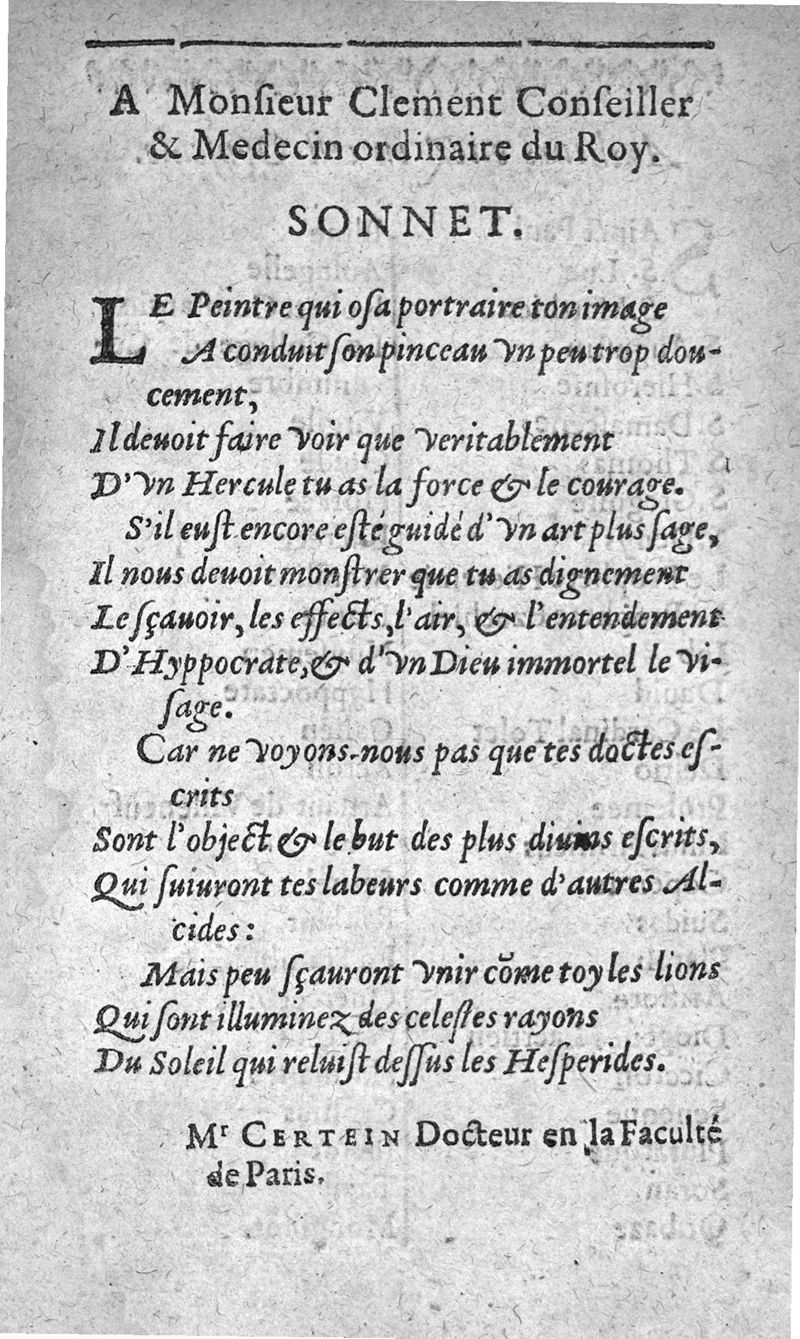 A Monſieur Clement Conſeiller
& Medecin ordinaire du Roy.
SONNET.
LE Peintre qui oſa portraire ton image
A conduit ſon pinceau vn peu trop dou-
cement,
Il deuoit faire voir que veritablement
D'vn Hercule tu as la force & le courage.
S'il euſt encore eſté guidé d'vn art plus ſage,
Il nous deuoit monſtrer que tu as dignement
Le ſçauoir, les effects, l'air, & l'entendement
D'Hyppocrate, & d'vn Dieu immortel le vi-
ſage.
Car ne voyons-nous pas que tes doctes eſ-
crits
Sont l'object & le but des plus diuins eſcrits,
Qui ſuiuront tes labeurs comme d'autres Al-
cides:
Mais peu ſçauront vnir cõme toy les lions
Qui ſont illuminez des celeſtes rayons
Du Soleil qui reluiſt deſſus les Heſperides.
Mr CERTEIN Docteur en la Faculté
de Paris.